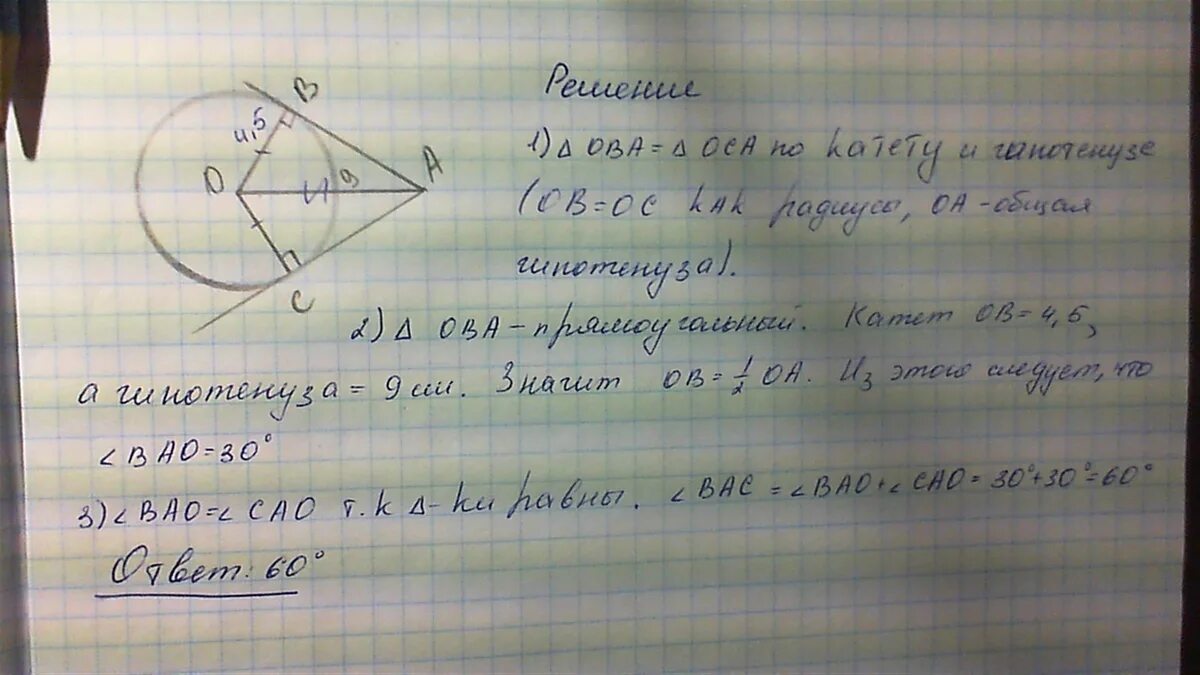 B
4,5
O
9
A
C
Решение
1) △ OBA = △ OCA по катету и гапотенузе
(OB=OC как радиусы, OA - общая
гипотенуза).
2) △ OBA - прямоугольный. Катет OB = 4,5,
а гипотенуза = 9 см. Значит OB = 1/2 OA. Из этого следует, что
∠BAO=30°
3) ∠BAO=∠CAO т.к △-ки равны. ∠BAC = ∠BAO+∠CAO = 30°+30°=60°
Ответ: 60°